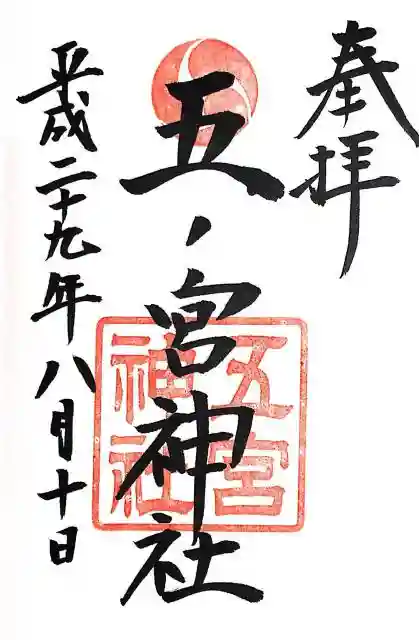 奉拝
五ノ宮神社
五宮
神社
平成二十九年八月十日